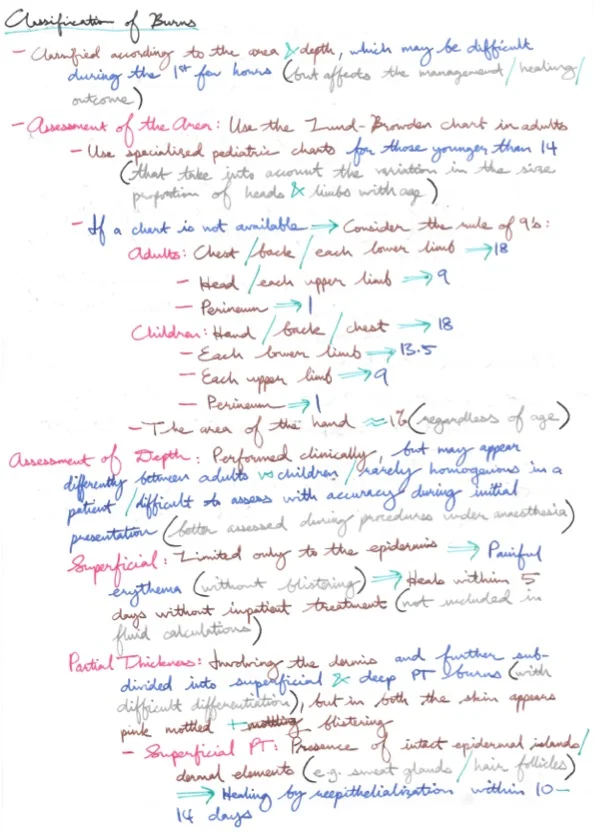 Classification of Burns
- Classified according to the area & depth, which may be difficult
during the 1st few hours (but affects the management/healing/
outcome)
- Assessment of the Area: Use the Lund-Browder chart in adults
- Use specialized pediatric charts for those younger than 14
(that take into account the variation in the size
proportion of heads & limbs with age)
- If a chart is not available → Consider the rule of 9's:
Adults: Chest/back/each lower limb → 18
- Head/each upper limb → 9
- Perineum → 1
Children: Head/back/chest → 18
- Each lower limb → 13.5
- Each upper limb → 9
- Perineum → 1
- The area of the hand ≈ 1% (regardless of age)
Assessment of Depth: Performed clinically, but may appear
differently between adults vs children/rarely homogenous in a
patient/difficult to assess with accuracy during initial
presentation (better assessed during procedures under anaesthesia)
Superficial: Limited only to the epidermis → Painful
erythema (without blistering) → Heals within 5
days without inpatient treatment (not included in
fluid calculations)
Partial Thickness: Involving the dermis and further sub-
divided into superficial & deep PT burns (with
difficult differentiation), but in both the skin appears
pink mottled + mottling blistering
- Superficial PT: Presence of intact epidermal islands/
dermal elements (e.g. sweat glands/hair follicles)
→ Healing by reepithelialization within 10-
14 days